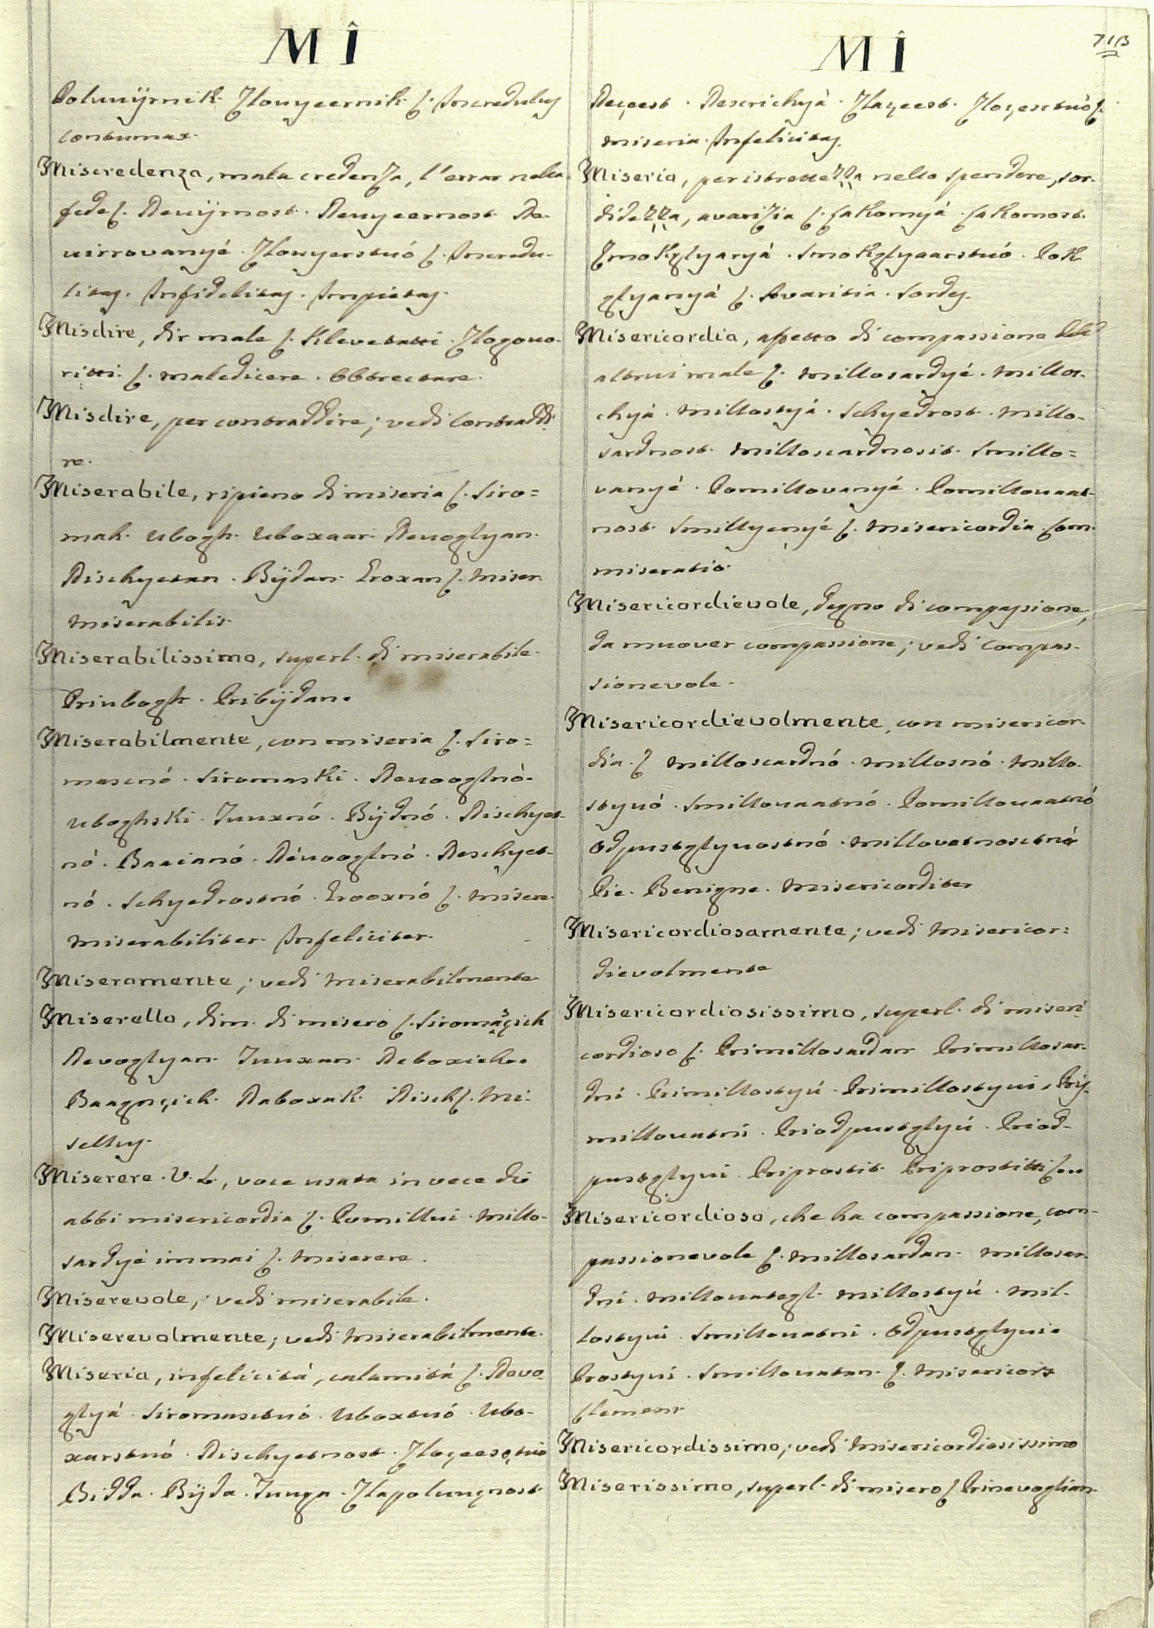 MÎ
Poluvijrnik. Zlovyeernik. ſ. Incredulus
contumax.
Miscredenza, mala credenza, l'errar nella
fede ſ. Nevijrnost. Nevyeernost. Ne-
virrovanyé. Zlovyerstvó ſ. Incredu-
litas. Infidelitas. Impietas.
Misdire, dir male ſ. Klevetatti. Zlogovo-
ritti. ſ. maledicere. Obtrectare.
Misdire, per contraddire; vedi Contraddi-
re.
Miserabile, ripieno di miseria ſ. Siro=
mah. Ubogh. Uboxaar. Nevoglyan.
Nischyetan. Bijdan. Eroxan ſ. Miser
miserabilis.
Miserabilissimo, superl. di miserabile.
Priubogh. Pribijdan.
Miserabilmente, con miseria ſ. Siro=
mascnó. Siromaski. Nevooglnó.
Uboghski. Tuuxnó. Bijdnó. Nischyet-
nó. Bacianó. Névooglnó. Neschyet-
nó. Schyedrostnó. Erooxnó ſ. misere.
miserabiliter. Infeliciter.
Miseramente; vedi miserabilmente
Miserello, dim. di misero ſ. Siromasçich
Nevoglyan. Tuuxan. Neboxich.
Baagnçich. Naboxak. Nisck ſ. Mi-
sellus.
Miserere. V. L., voce usata in vece di
abbi misericordia ſ. Pomillui. Millo-
sardyé immai ſ. miserere.
Miserevole; vedi miserabile.
Miserevolmente; vedi miserabilmente.
Miseria, infelicità, calamità ſ. Nevo-
glyá. Siromasctvó. Uboxtvó. Ubo-
xarstvó. Nischyetnost. Zloçeesçtvo
Bidda. Bijda. Tuuga. Zlapoluuçnost.
MÎ
713
Neçest. Nesrichyá. Zlaçeest. Zloçesctvó ſ.
miseria. Infelicitas.
Miseria, per istrettezza nello spendere, sor-
didezza, avarizia ſ. Lakomyá. Lakomost.
Smokglyaryá. Smokglyaarstvó. Pok
glyanyá ſ. Avaritia. Sordes.
Misericordia, afetto di compassione dell'
altrui male ſ. millosardyé. millos-
chyá. millostyá. Schyedrost. millo-
sardnost. milloscardnosct. Smillo=
vanyé. Pomillovanyé. Pomillovaat-
nost. Smillyenyé ſ. misericordia. Com-
miseratio.
Misericordievole, degno di compassione,
da muover compassione; vedi compas-
sionevole.
Misericordievolmente, con misericor-
dia. ſ milloscardnó. millosnó. millo-
styvó. Smillovaatnó. Pomillovaatnó
Odpustglyvostnó. millovatnosctnó
Pie. Benigne. Misericorditer
Misericordiosamente; vedi misericor=
dievolmente
Misericordiosissimo, superl. di miseri
cordioso ſ. Primillosardan Primillosar-
dni. Primillostyú. Primillostyvi. Prij-
millovatni. Priodpustglyú. Priod-
pustglyvi. Priprostit. Priprostitti ſ.
Misericordioso, che ha compassione, com-
passionevole ſ. millosardan. millosar-
dni. millovategl. millostyú. mil-
lostyvi. Smillovatni. Odpustglyvi.
Prostyvi. Smillovatan. ſ. misericors
Clemens
Misericordissimo; vedi misericordiosissimo
Miserissimo, superl. di misero ſ Prinevoglian